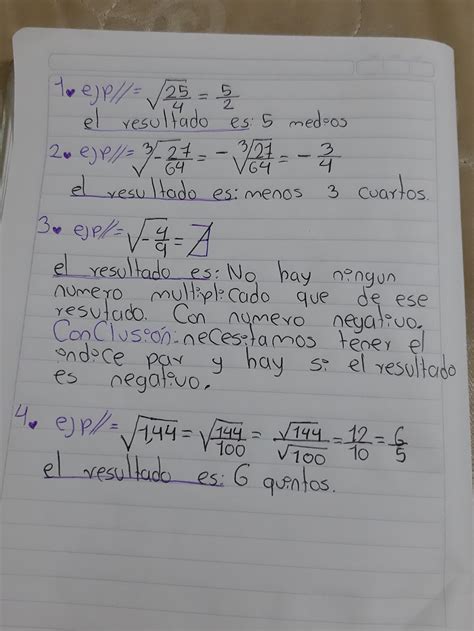 1. ejp//= √25/4 = 5/2
el resultado es: 5 medios
2. ejp//= ³√-27/64 = -³√27/64 = -3/4
el resultado es: menos 3 cuartos.
3. ejp//= √-4/9 = ∄
el resultado es: No hay ningun
numero multiplicado que de ese
resutado. Con numero negativo.
Conclusión: necesitamos tener el
indice par y hay si el resultado
es negativo.
4. ejp//= √1,44 = √144/100 = √144/√100 = 12/10 = 6/5
el resultado es: 6 quintos.